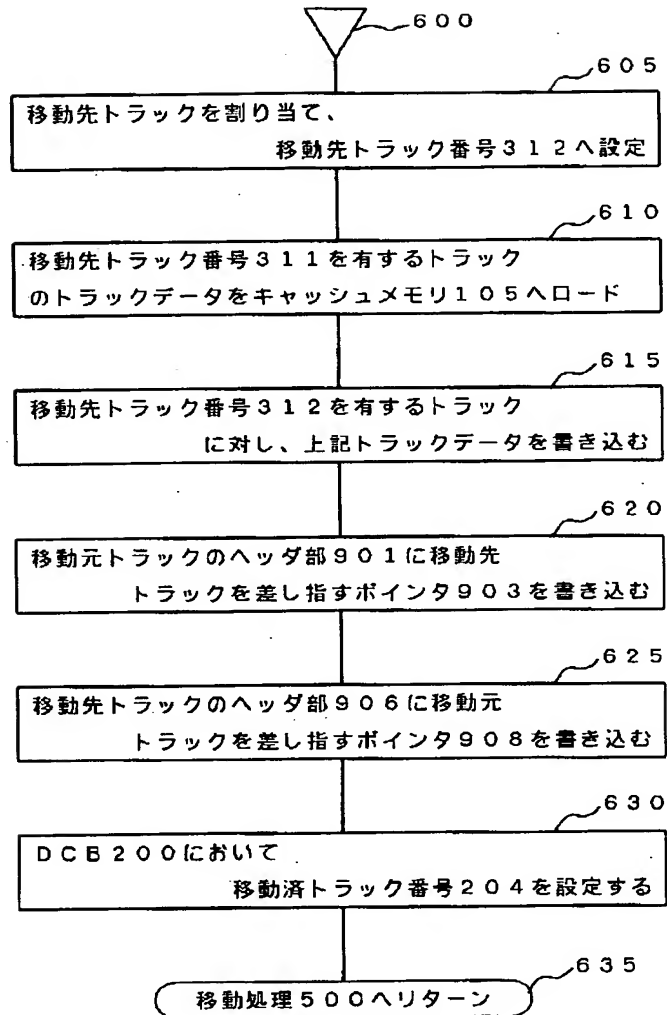 600
605
移動先トラックを割り当て、
移動先トラック番号312へ設定
610
移動先トラック番号311を有するトラック
のトラックデータをキャッシュメモリ105へロード
615
移動先トラック番号312を有するトラック
に対し、上記トラックデータを書き込む
620
移動元トラックのヘッダ部901に移動先
トラックを差し指すポインタ903を書き込む
625
移動先トラックのヘッダ部906に移動元
トラックを差し指すポインタ908を書き込む
630
DCB200において
移動済トラック番号204を設定する
635
移動処理500へリターン